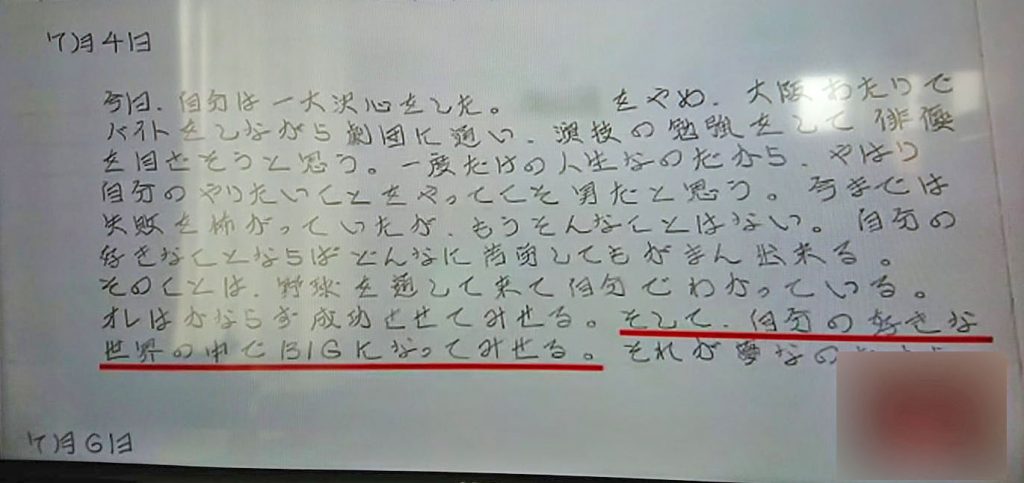 7月4日
今日、自分は一大決心をした。 をやめ、大阪あたりで
バイトをしながら劇団に通い、演技の勉強をして俳優
を目ざそうと思う。一度だけの人生なのだから、やはり
自分のやりたいことをやってこそ男だと思う。今までは
失敗を怖がっていたが、もうそんなことはない。自分の
好きなことならばどんなに苦労してもがまん出来る。
そのことは、野球を通して来て自分でわかっている。
オレはかならず成功させてみせる。そして、自分の好きな
世界の中でBIGになってみせる。それが夢なの
7月6日